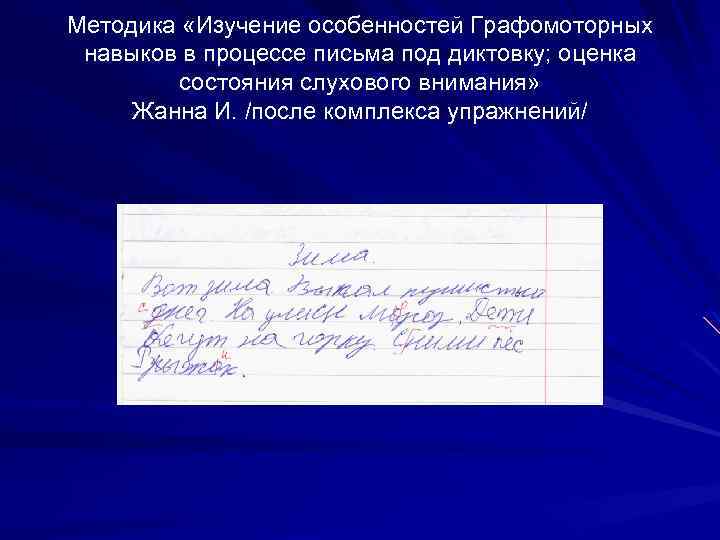 Методика «Изучение особенностей Графомоторных
навыков в процессе письма под диктовку; оценка
состояния слухового внимания»
Жанна И. /после комплекса упражнений/
Зима.
Вот зима. пушистый
с
На улеци Дети
бегут на горку. С ними пес
и